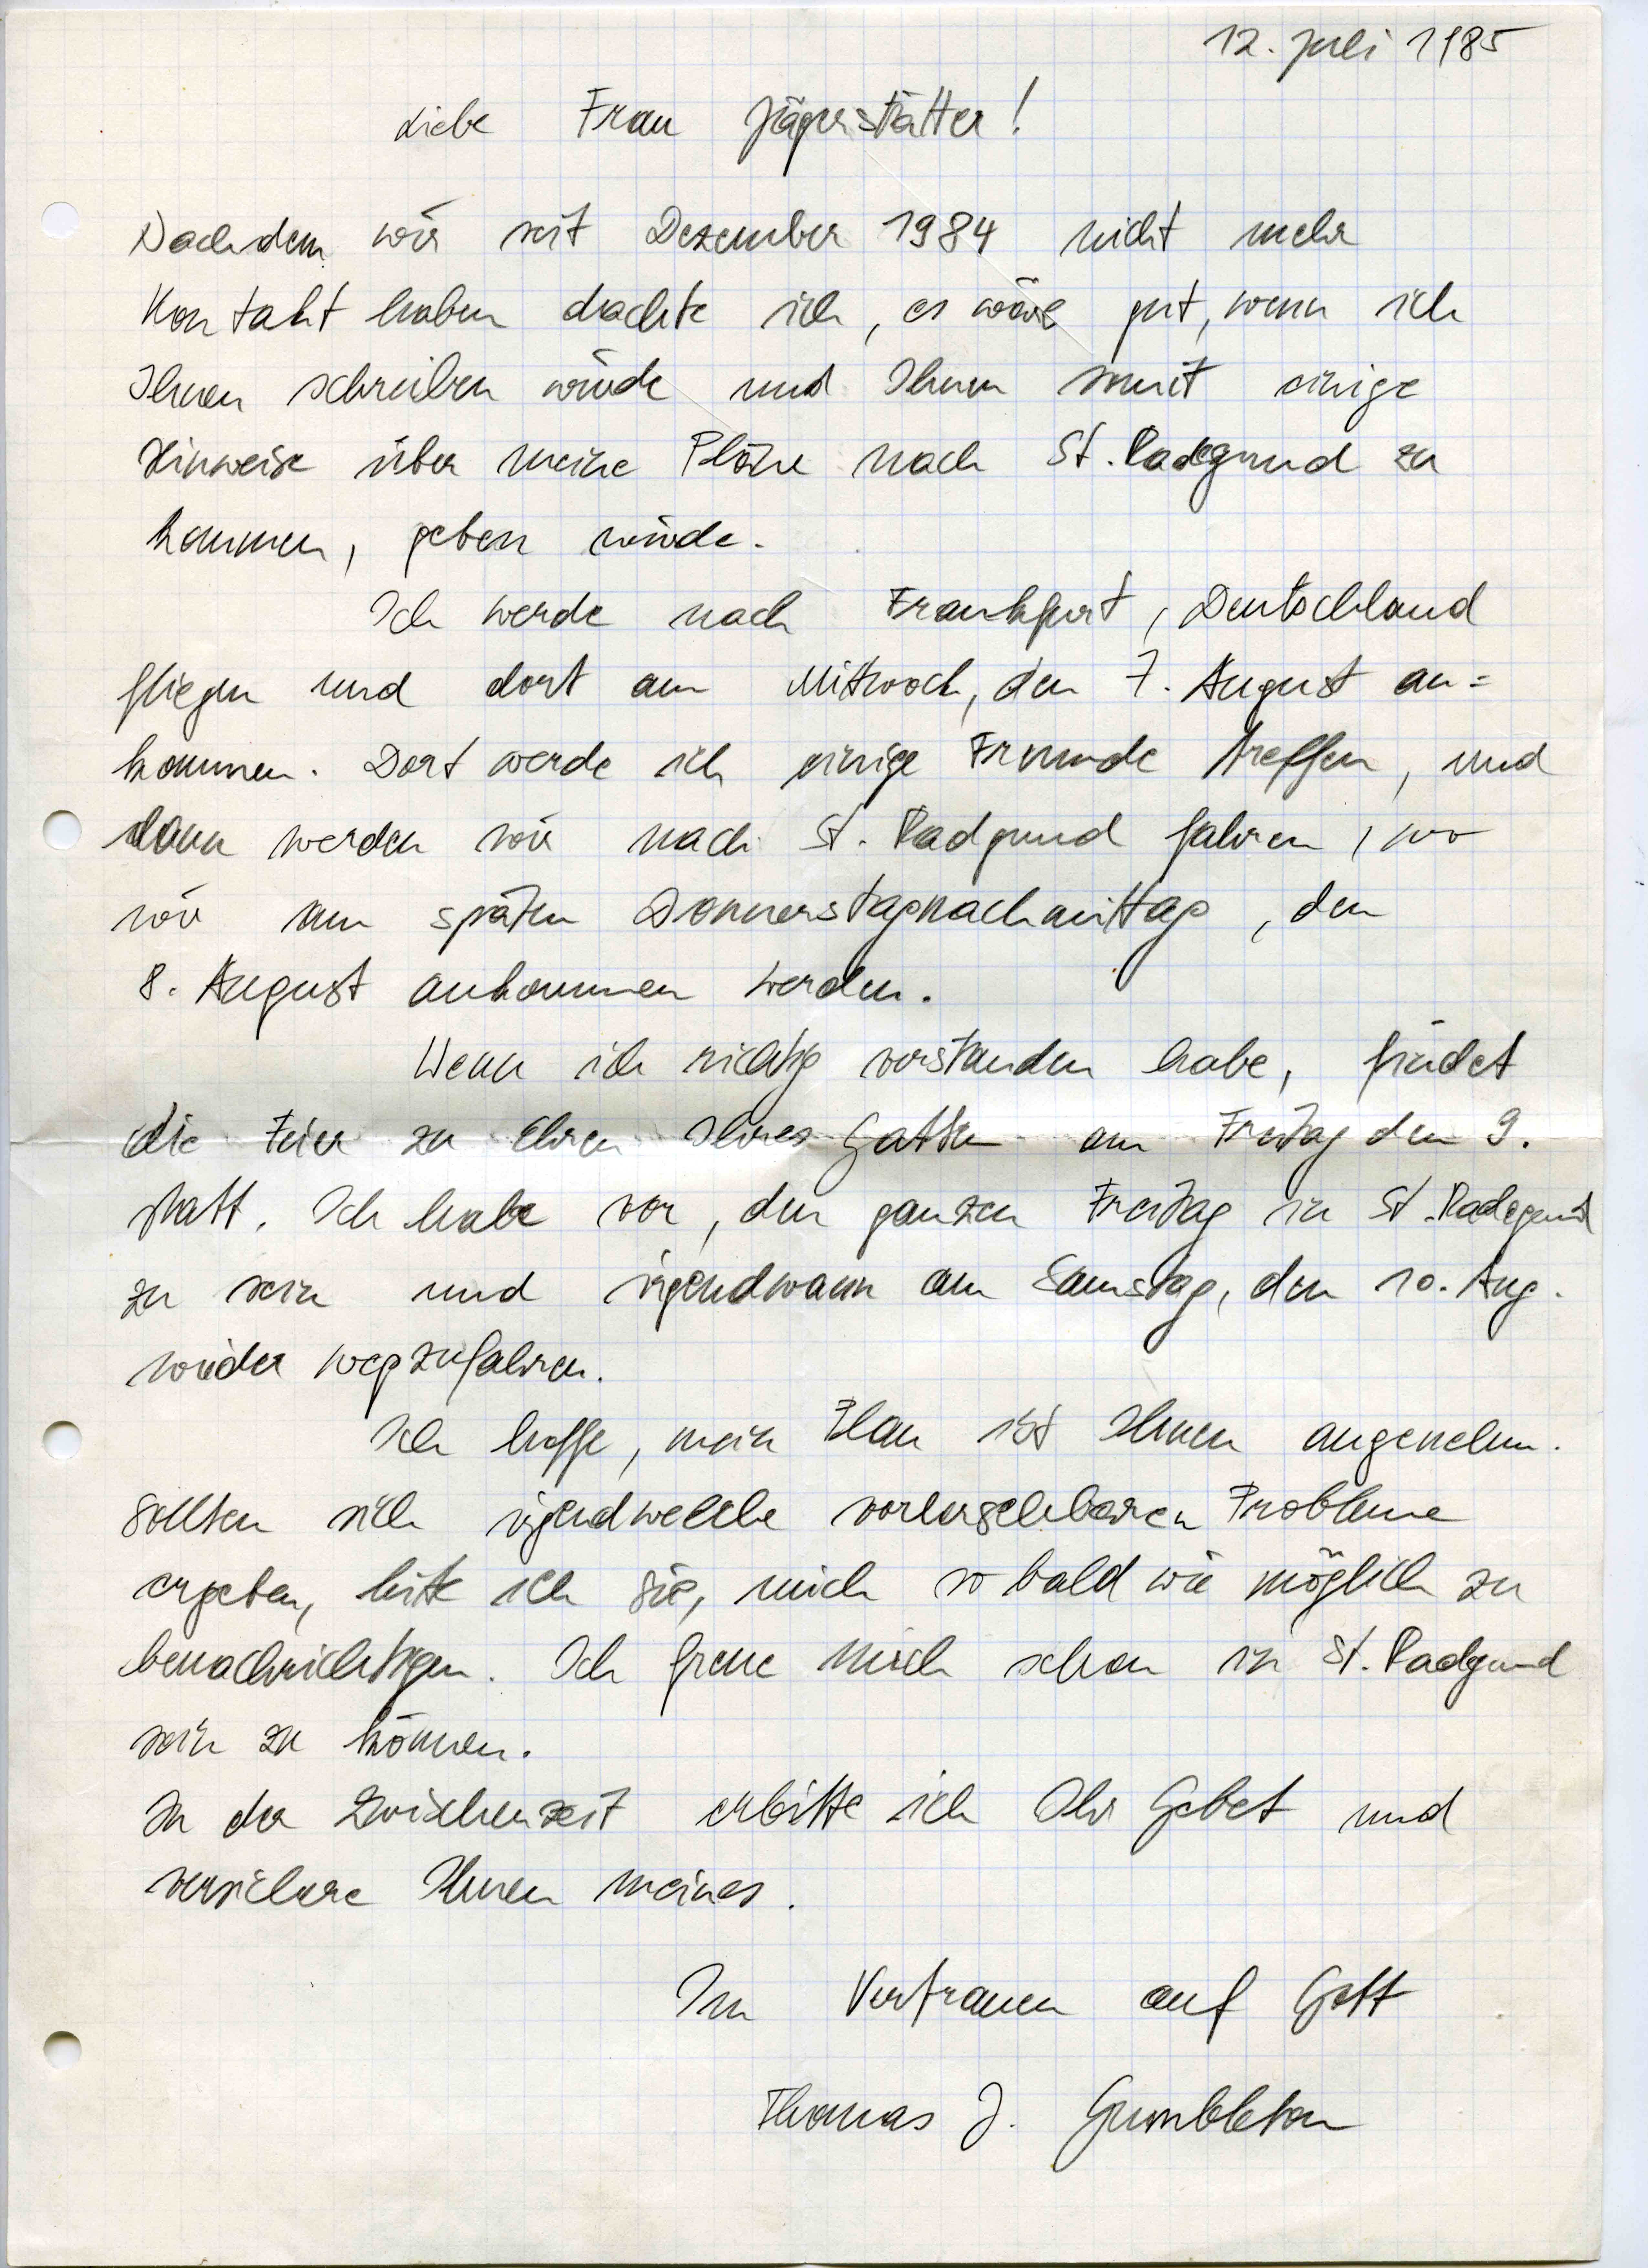 12. Juli 1985
Liebe Frau Jägerstätter!
Nachdem wir seit Dezember 1984 nicht mehr
Kontakt haben dachte ich, es wäre gut, wenn ich
Ihnen schreiben würde und Ihnen somit einige
Hinweise über meine Pläne nach St. Radegund zu
kommen, geben würde.
Ich werde nach Frankfurt, Deutschland
fliegen und dort am Mittwoch, den 7. August an=
kommen. Dort werde ich einige Freunde treffen, und
dann werden wir nach St. Radgund fahren, wo
wir am späten Donnerstagnachmittag, den
8. August ankommen werden.
Wenn ich richtig verstanden habe, findet
die Feier zu Ehren Ihres Gatten am Freitag den 9.
statt. Ich habe vor, den ganzen Freitag in St. Radegund
zu sein und irgendwann am Samstag, den 10. Aug.
wieder wegzufahren.
Ich hoffe, mein Plan ist Ihnen angenehm.
Sollten sich irgendwelche vorhersehbaren Probleme
ergeben, bitte ich Sie, mich so bald wie möglich zu
benachrichtigen. Ich freue mich schon in St. Radgund
sein zu können.
In der Zwischenzeit erbitte ich Ihr Gebet und
versichere Ihnen meines.
Im Vertrauen auf Gott
Thomas J. Gumbleton